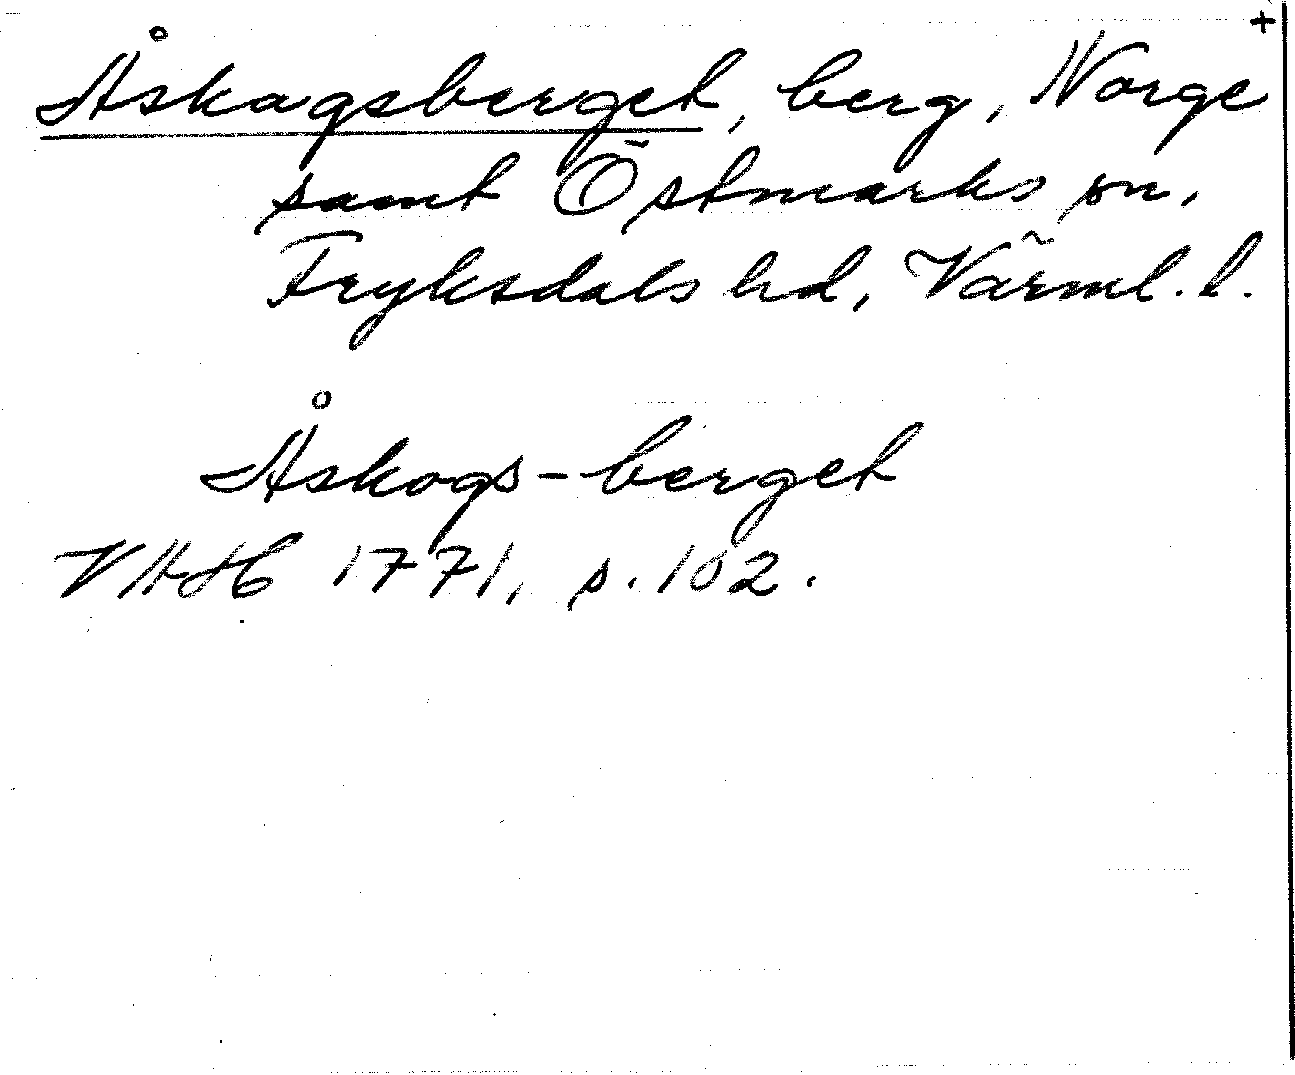 +
Åskagsberget, berg, Norge
samt Östmarks sn,
Fryksdals hd, Värml. l.
Åskogs-berget
VAH 1771, s. 102.